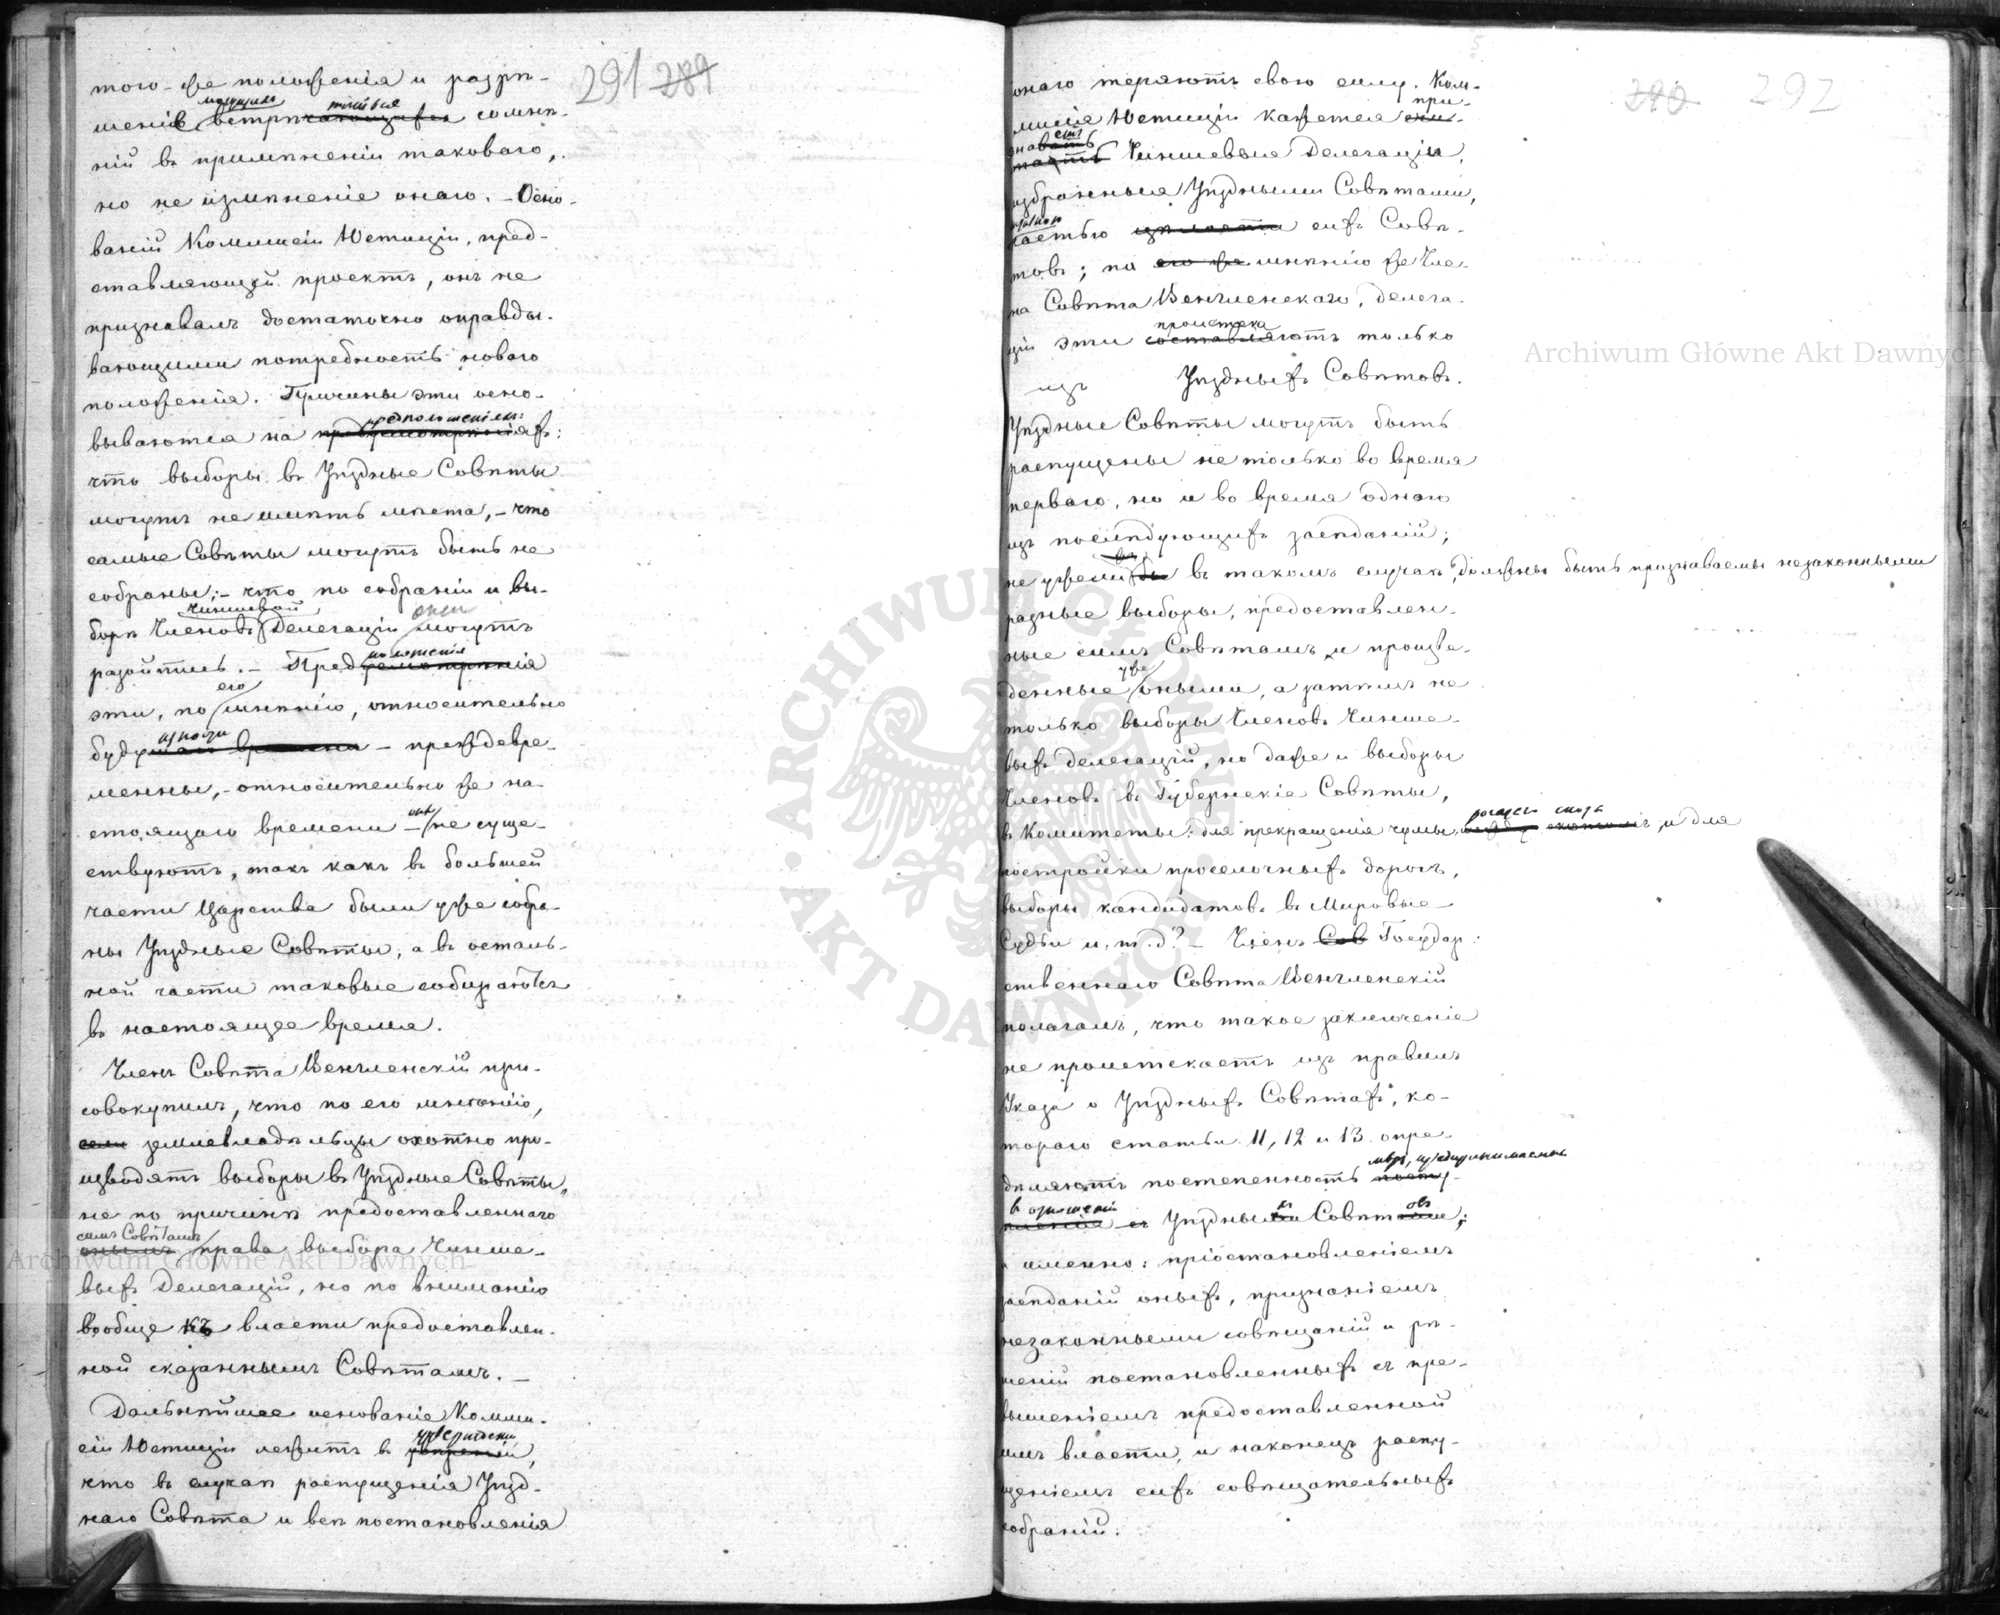 291 289
того-же положенія и разрѣ-
могущихъ
шеніе встрѣчающихся сомнѣ-
ній въ примѣненіи таковаго,
но не измѣненіе онаго. - Осно-
ваній Коммисіи Юстиціи, пред-
ставляющей проектъ, онъ не
признавалъ достаточно оправды-
вающими потребность новаго
положенія. Причины эти осно-
предположеніяхъ:
вываются на предусмотрѣніяхъ:
что выборы въ Уѣздные Совѣты
могутъ не имѣть мѣста, - что
самые Совѣты могутъ быть не
собраны; - что по собраніи и вы-
Чиншевой они
борѣ Членовъ Делегаціи могутъ
разойтись. - Предусмотрѣнія
положенія
его
эти, по мнѣнію, относительно
будущаго времени - преждевре-
менны, - относительно же на-
стоящаго времени - не суще-
ствуютъ, такъ какъ въ большей
части Царства были уже собра-
ны Уѣздные Совѣты, а въ осталь-
ной части таковые собираются
въ настоящее время.
Членъ Совѣта Венгленскій при-
совокупилъ, что по его мнѣнію,
землевладѣльцы охотно про-
изводятъ выборы въ Уѣздные Совѣты,
не по причинѣ предоставленнаго
симъ Совѣтамъ
онымъ права выбора Чинше-
выхъ Делегацій, но по вниманію
вообще къ власти предоставлен-
ной сказаннымъ Совѣтамъ. -
Дальнѣйшее основаніе Комми-
сіи Юстиціи лежитъ въ
что въ случаѣ распущенія Уѣзд-
наго Совѣта и всѣ постановленія
290 292
онаго теряютъ свою силу. Ком-
при-
мисія Юстиціи кажется
Чиншевыя Делегаціи,
избранныя Уѣздными Совѣтами,
частью сихъ Совѣ-
товъ; по его же мнѣнію же Чле-
на Совѣта Венгленскаго, делега-
проистека
ціи эти составляютъ только
изъ Уѣздныхъ Совѣтовъ.
Уѣздные Совѣты могутъ быть
распущены не только во время
перваго, но и во время однаго
изъ послѣдующихъ засѣданій;
не ужели бы въ такомъ случаѣ, должны быть признаваемы незаконными
разные выборы, предоставлен-
ные симъ Совѣтамъ и произве-
уже
денные оными, а затѣмъ не
только выборы Членовъ Чинше-
выхъ делегацій, но даже и выборы
Членовъ въ Губернскіе Совѣты,
рогатаго скота
въ Комитеты: для прекращенія чумы, и для
постройки проселочныхъ дорогъ,
выборы кандидатовъ въ Мировые
Судьи и, т. д? - Членъ Сов Государ:
ственнаго Совѣта Венгленскій
полагалъ, что такое заключеніе
не проистекаетъ изъ правилъ
Указа о Уѣздныхъ Совѣтахъ, ко-
тораго статьи 11, 12 и 13 опре-
мѣръ, предпринимаемыхъ
дѣляютъ постепенность
въ отношеніи
Уѣздныхъ Совѣтовъ;
а именно: пріостановленіемъ
засѣданій оныхъ, признаніемъ
незаконными совѣщаній и рѣ-
шеній постановленныхъ съ пре-
вышеніемъ предоставленной
имъ власти, и наконецъ распу-
щеніемъ сихъ совѣщательныхъ
собраній.
Archiwum Główne Akt Dawnych
Archiwum Główne Akt Dawnych
ARCHIWUM GŁÓWNE AKT DAWNYCH